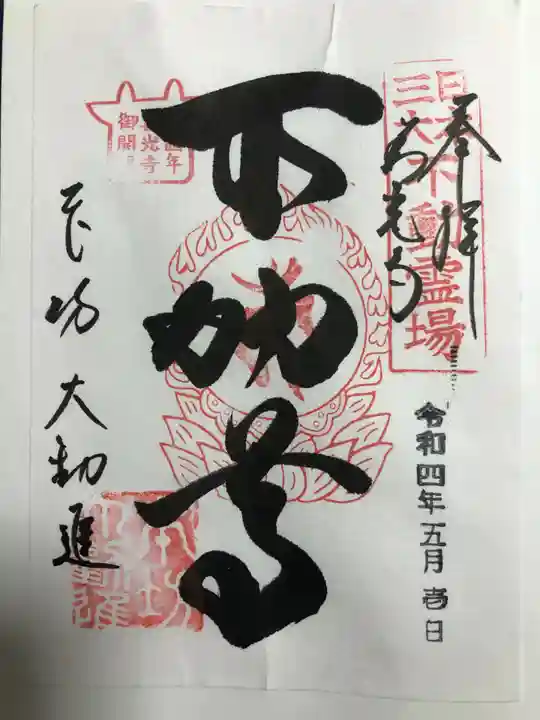 奉拝
善光寺
日本
三大不動霊場
令和四年五月壱日
不動尊
四年
光寺
御開
本坊 大勧進